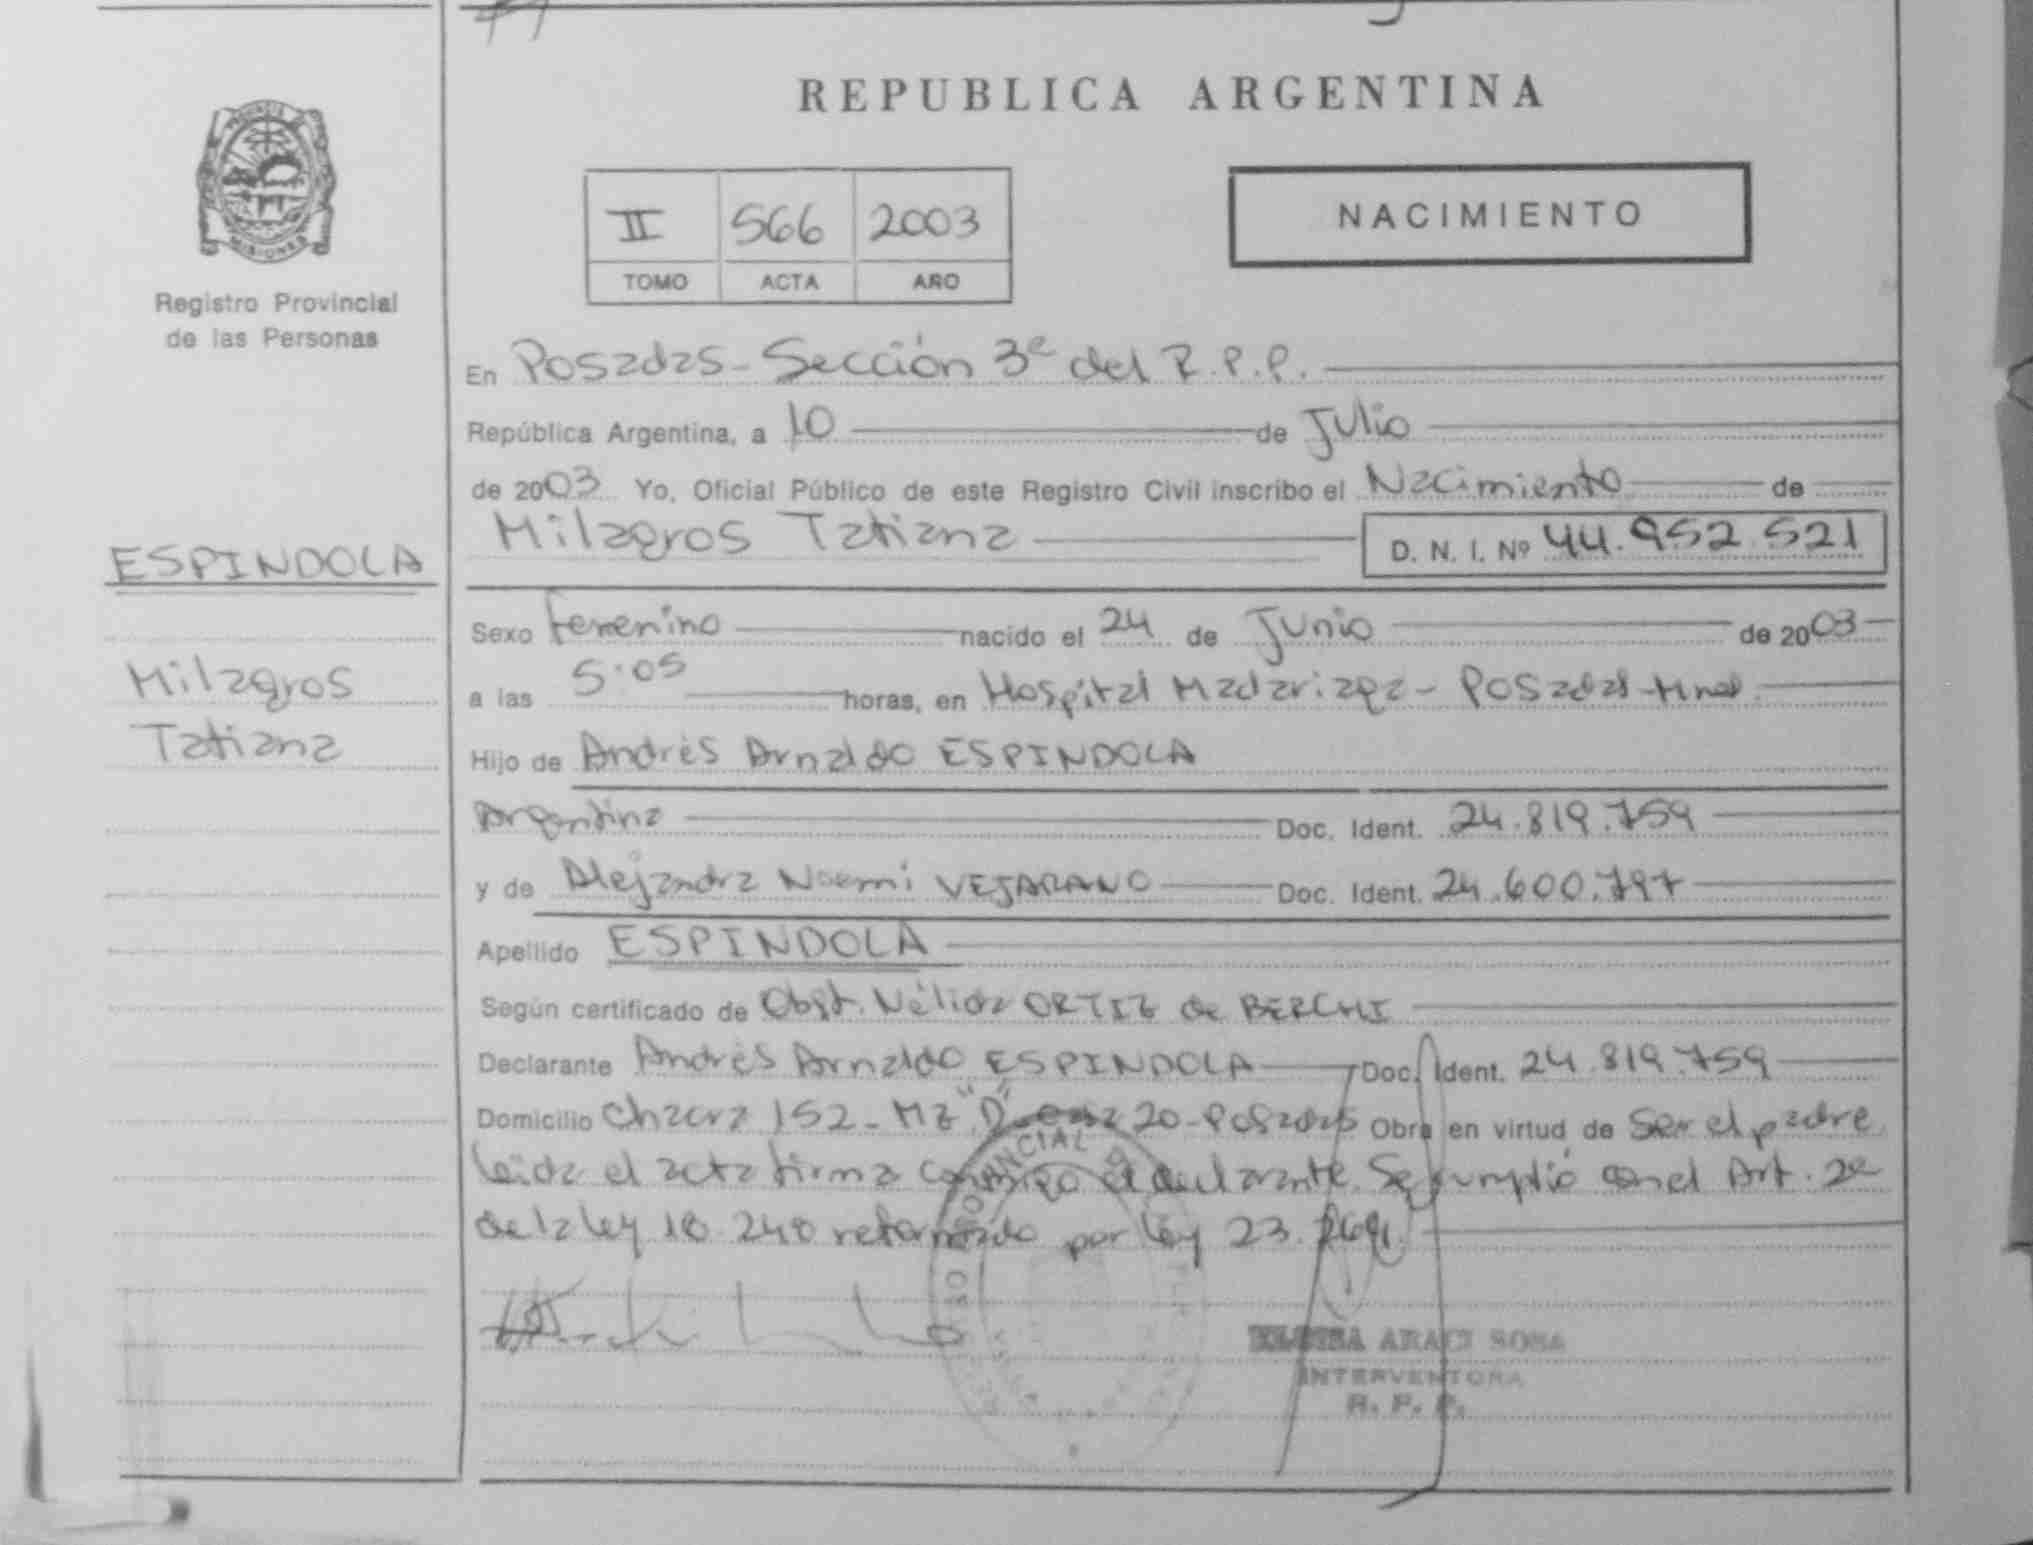 REPUBLICA ARGENTINA
PROVINCIA DE
MISIONES
Registro Provincial
de las Personas
II 566 2003
TOMO ACTA AÑO
NACIMIENTO
En Posadas - Sección 3ª del R.P.P.
República Argentina, a 10 de Julio
de 2003 Yo, Oficial Público de este Registro Civil inscribo el Nacimiento de
Milagros Tatiana D. N. I. Nº 44.952.521
ESPINDOLA
Milagros
Tatiana
Sexo femenino nacido el 24 de Junio de 2003
a las 5:05 horas, en Hospital Madariaga - Posadas - Mnes.
Hijo de Andrés Arnaldo ESPINDOLA
Argentina Doc. Ident. 24.819.759
y de Alejandra Noemi VEJARANO Doc. Ident. 24.600.797
Apellido ESPINDOLA
Según certificado de Obst. Nélida ORTIZ de BERCHI
Declarante Andrés Arnaldo ESPINDOLA Doc. Ident. 24.819.759
Domicilio Chacra 152 - Mz "D" casa 20 - Posadas Obra en virtud de ser el padre
leída el acta firma conmigo el declarante. Se cumplió con el Art. 2º
de la ley 18.248 reformado por ley 23.
ARACI SOSA
INTERVENTORA
R. P. P.